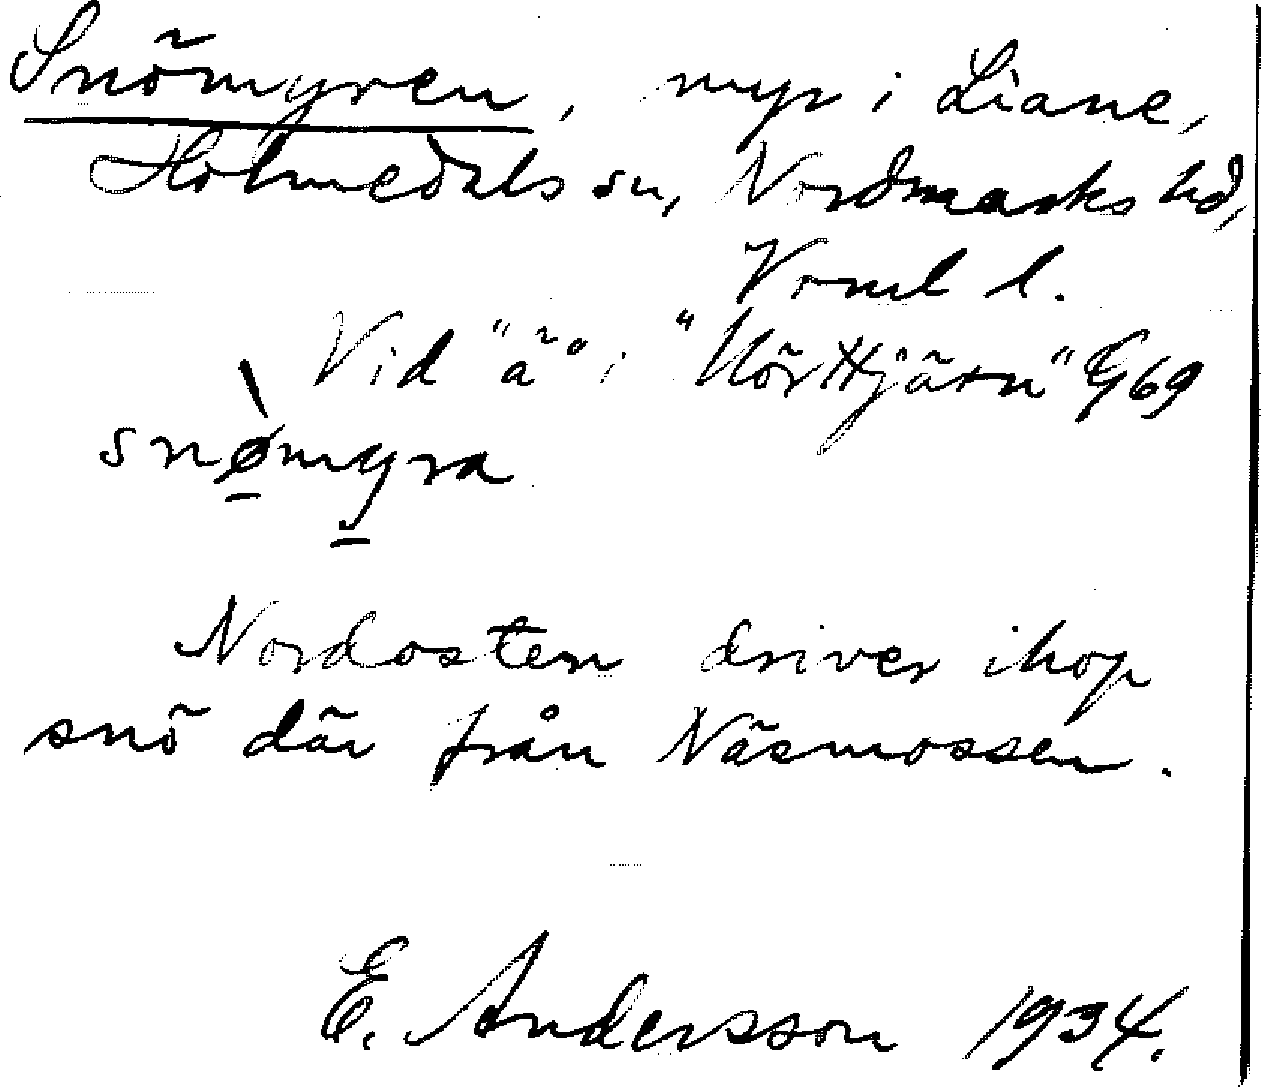 Snömyren, myr i Liane,
Holmedals sn, Nordmarks hd,
Vrml l.
Vid "ä" i "Hörttjärn" G69
snømyra
Nordosten driver ihop
snö där från Näsmossen.
E. Andersson 1934.